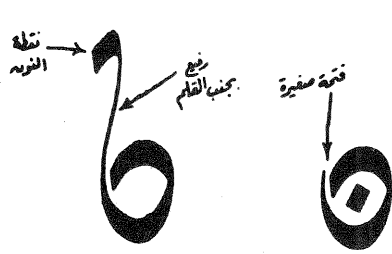 نقطة
النون
رفيع
بجنب القلم
فتحة صغيرة
ن